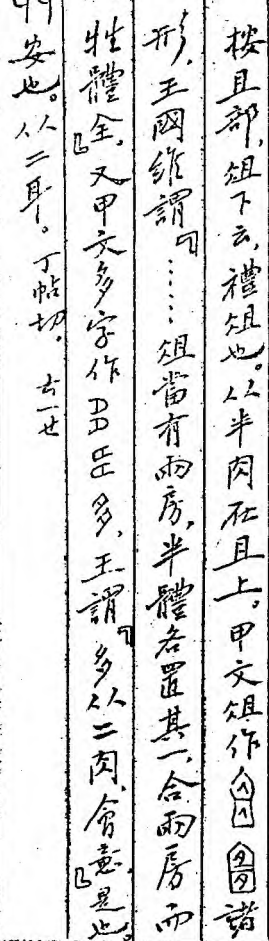 按且部，俎下云，禮俎也。从半肉在且上。甲文俎作諸
形，王國維謂『……俎當有兩房，半體各置其一，合兩房而
牲體全』。又甲文多字作多，王謂『多从二肉，會意』是也。
安也。从二耳。丁帖切。